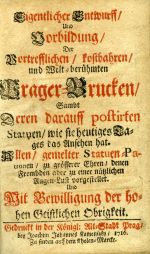 Eigentlicher Entwurff/
Und
Vorbildung/
Der
Vortrefflichen / kostbahren/
und Welt-berühmten
Prager-Brucken/
Sambt
Deren darauff postirten
Statuen/ wie sie heutiges Ta-
ges das Ansehen hat.
Allen/ gemelter Statuen-Pa-
tronen/ zu grösserer Ehren/ denen
Frembden aber zu einer nützlichen
Augen-Lust vorgestellet.
Und
Mit Bewilligung der ho-
hen Geistlichen Obrigkeit.
Gedruckt in der Königl: Alt-Stadt Prag/
bey Joachim Johannes Kamenitzky /
Zu finden auf dem Kholen-Marckt.